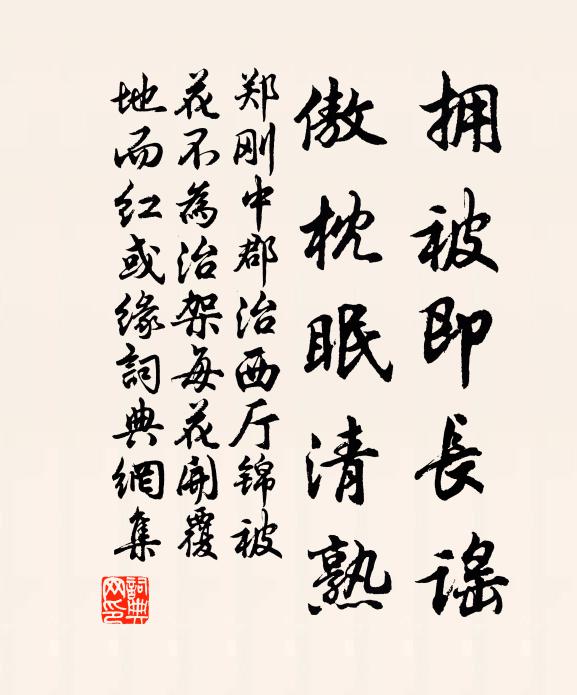 拥被即长谣
傲枕眠清熟
郑刚中郡治西厅锦被
花不為治架每花開覆
地而红或缘詞典網集
詞典網印